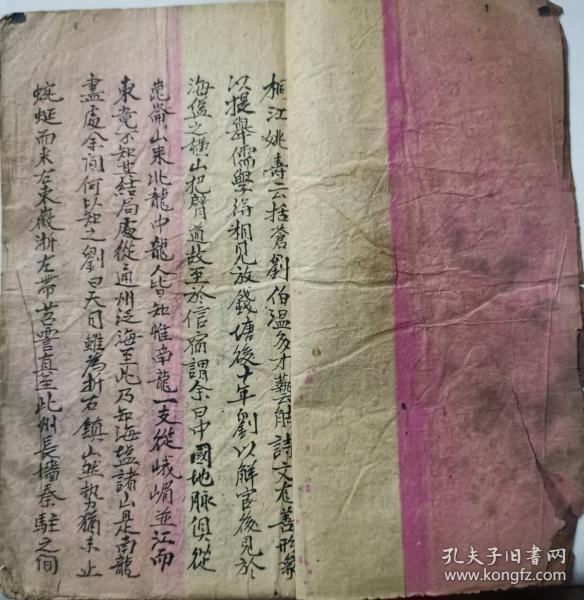 桐江姚壽云括蒼劉伯溫多才藝能詩文尤善形家
以提舉儒學得相見於錢塘後十年劉以解官復見於
海塩之橫山把臂道故至於信宿謂余曰中國地脉俱從
崑崙山來北龍中龍人皆知惟南龍一支從峨嵋並江而
東竟不知其結局處從通州泛海至此乃知海塩諸山是南龍
盡處余問何以知之劉曰天目雖為浙右鎮山然勢猶未止
蜿蜒而來右束黟浙左帶苕霅直至此州長墻秦駐之间
孔夫子旧书网
www.kongfz.com